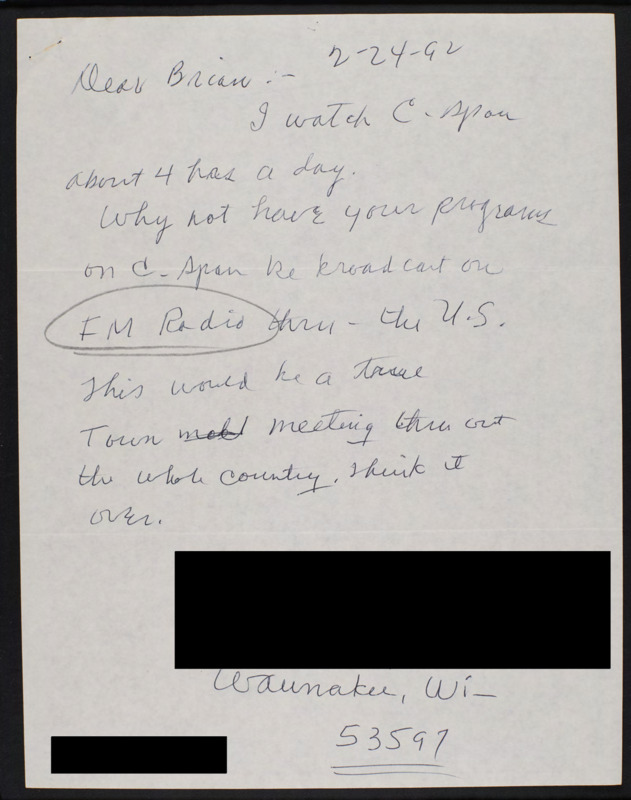 2-24-92
Dear Brian :-
I watch C-Span
about 4 hrs a day.
Why not have your programs
on C-Span be broadcast on
FM Radio thru - the U.S.
This would be a true
Town meeting thru out
the whole country. Think it
over.
Waunakee, Wi-
53597